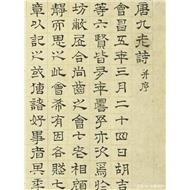 唐九老詩 并序
會昌五年三月二十四日胡吉
等六賢皆多年壽余亦次焉
坊敝居合尚齒之會七老相
靜而思之此會希有因各賦七
章以記之或傳諸好事者其年